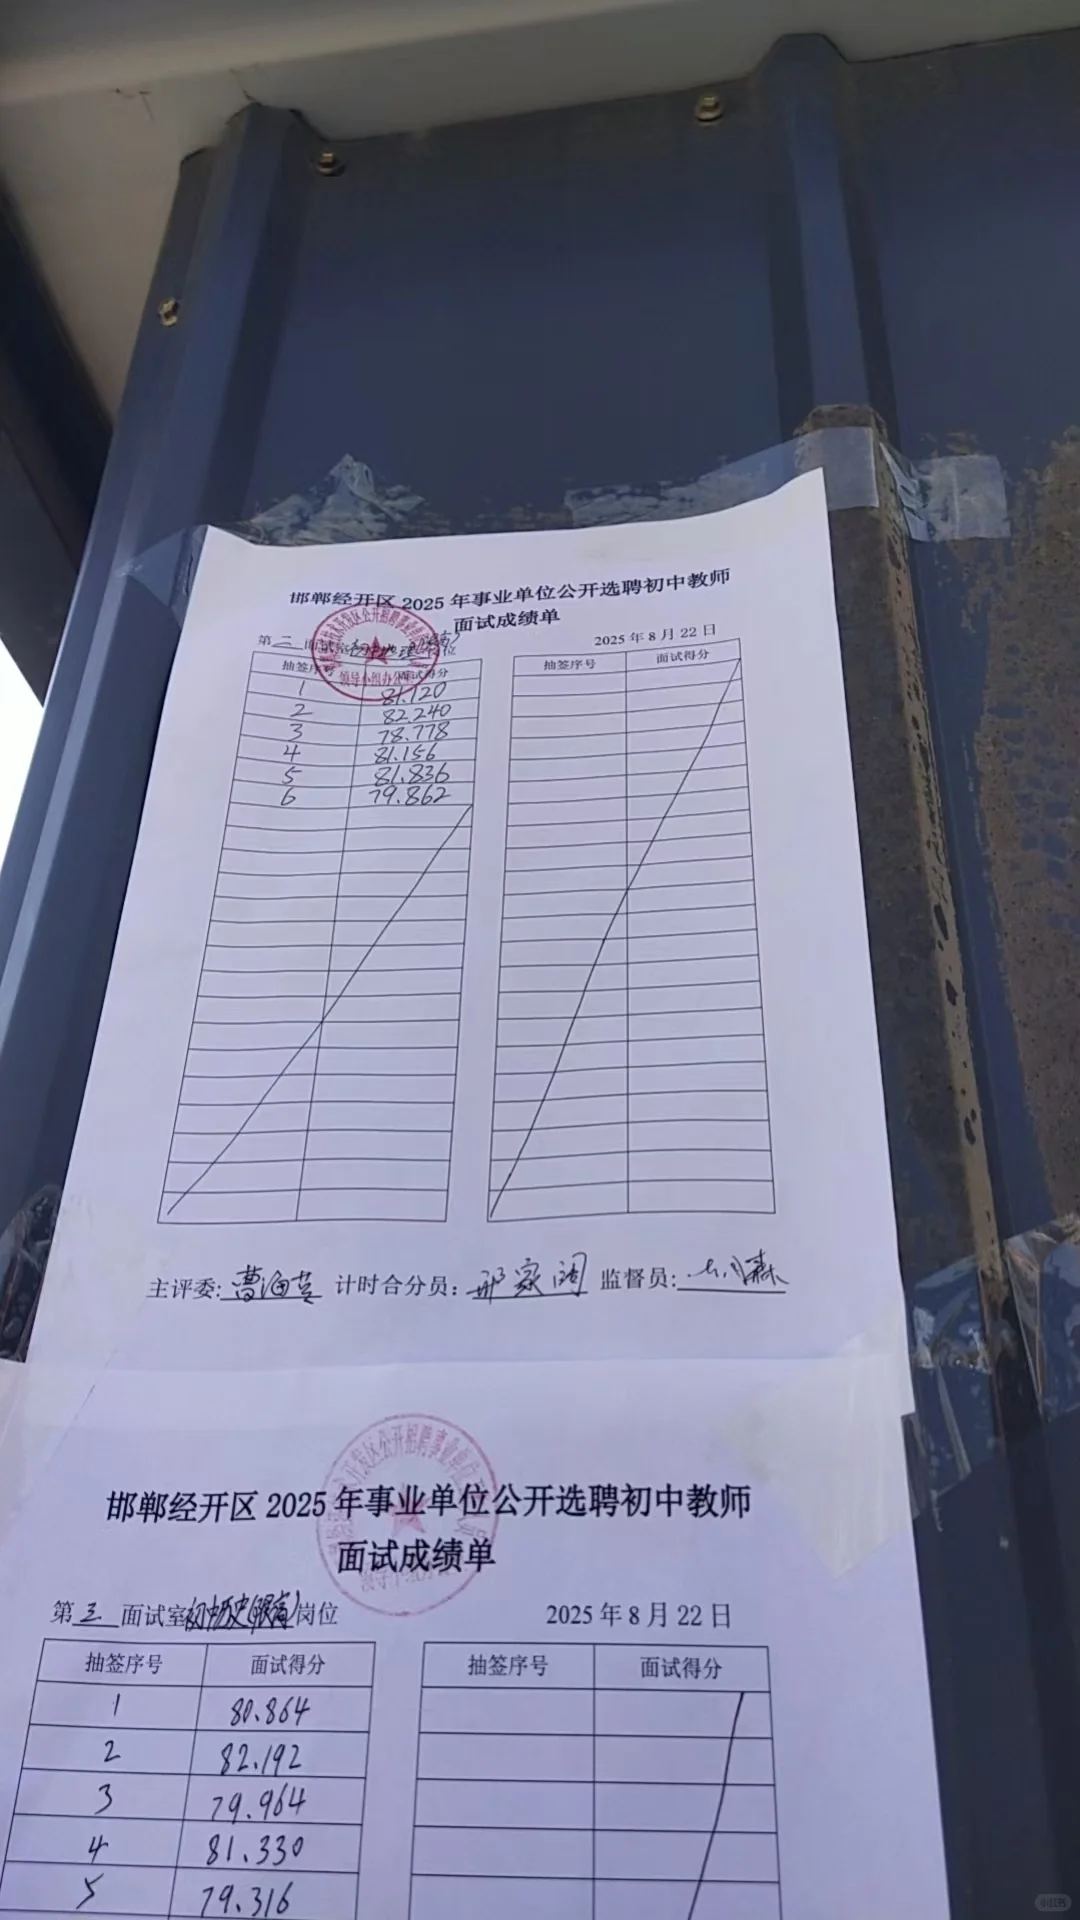 邯郸经开区 2025 年事业单位公开选聘初中教师
面试成绩单
第 二 面试室 初中地理 岗位 2025 年 8 月 22 日
抽签序号 面试得分 抽签序号 面试得分
1 81.120
2 82.240
3 78.778
4 81.156
5 81.836
6 79.862
主评委: 曹海芸 计时合分员: 邢家阔 监督员:
邯郸经开区 2025 年事业单位公开选聘初中教师
面试成绩单
第 三 面试室 初中历史(限高) 岗位 2025 年 8 月 22 日
抽签序号 面试得分 抽签序号 面试得分
1 80.864
2 82.192
3 79.964
4 81.330
5 79.316
小红书